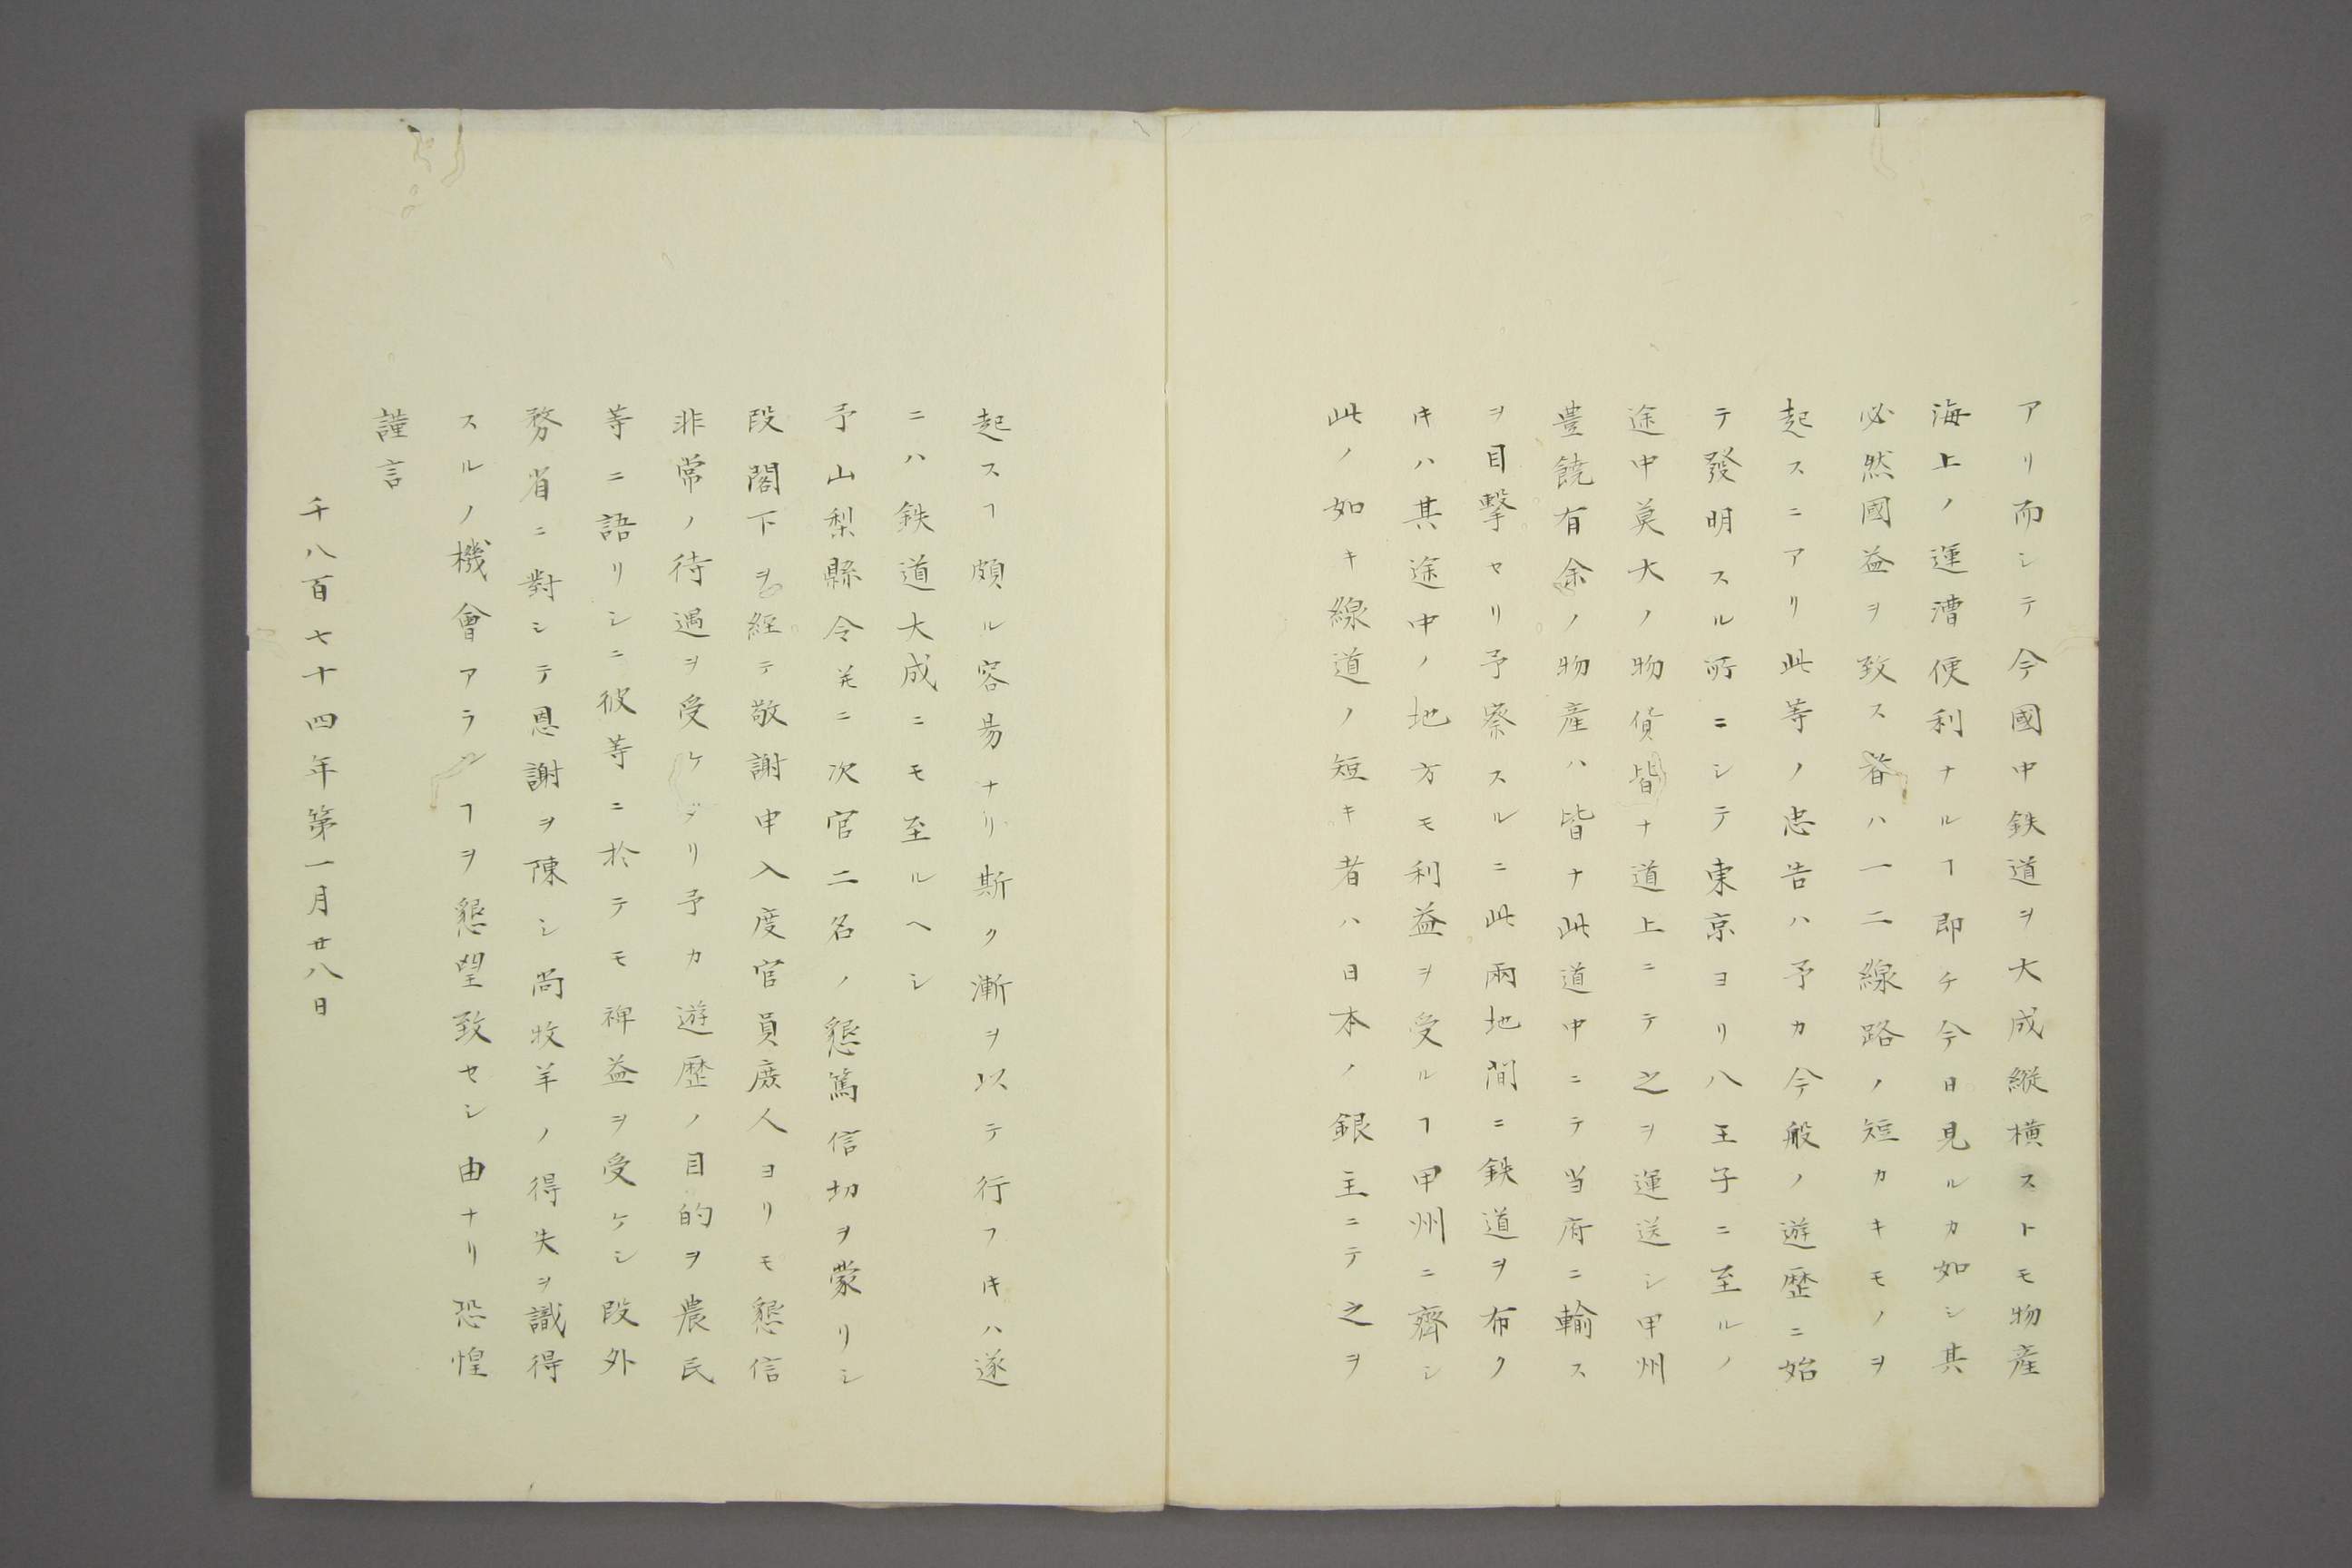 アリ而シテ今國中鉄道ヲ大成縦横ストモ物産
海上ノ運漕便利ナルヿ即チ今日見ルカ如シ其
必然國益ヲ致ス者ハ一二線路ノ短カキモノヲ
起スニアリ此等ノ忠告ハ予カ今般ノ遊歴ニ始
テ發明スル所ニシテ東京ヨリ八王子ニ至ルノ
途中莫大ノ物貨皆ナ道上ニテ之ヲ運送シ甲州
豊饒有余ノ物産ハ皆ナ此道中ニテ当府ニ輸ス
ヲ目擊セリ予察スルニ此兩地間ニ鉄道ヲ布ク
キハ其途中ノ地方モ利益ヲ受ルヿ甲州ニ齊シ
此ノ如キ線道ノ短キ者ハ日本ノ銀主ニテ之ヲ
起スヿ頗ル容易ナリ斯ク漸ヲ以テ行フキハ遂
ニハ鉄道大成ニモ至ルヘシ
予山梨縣令并ニ次官二名ノ懇篤信切ヲ蒙リシ
段閣下ヲ経テ敬謝申入度官員庶人ヨリモ懇信
非常ノ待遇ヲ受ケタリ予カ遊歴ノ目的ヲ農民
等ニ語リシニ彼等ニ於テモ裨益ヲ受ケシ段外
務省ニ對シテ恩謝ヲ陳シ尚牧羊ノ得失ヲ識得
スルノ機會アランヿヲ懇望致セシ由ナリ恐惶
謹言
千八百七十四年第一月廿八日